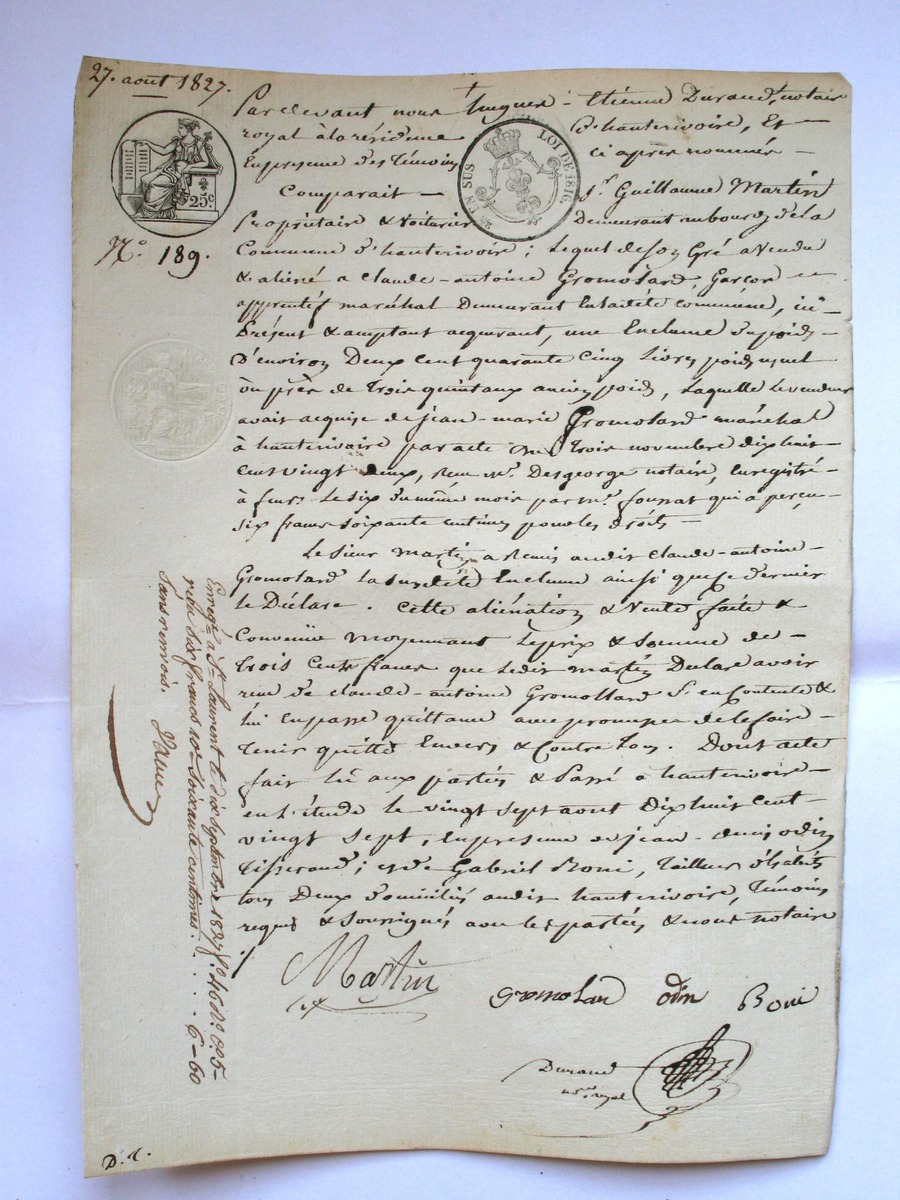 27. août 1827.
Pardevant nous hugues-Etienne Durand, notaire
royal à la résidence d'hauterivoire, Et
En présence des Témoins ci après nommés
25c
EN SUS LOI DE 1816.
Comparait Sr. Guillaume Martin
Propriétaire & voiturier Demeurant au bourg de la
N.o 189.
Commune d'hauterivoire; lequel de son gré a Vendu
& aliéné a Claude-antoine Gromolard, Garçon
apprentif maréhal Demeurant En ladite commune, ici
Présent & acceptant acquerant, une Enclume du poids
D'environ Deux cent quarante Cinq Livres poids usuel
ou près de Trois quintaux ancien poids, Laquelle le vendeur
avait acquise de jean-marie Gromolard maréhal
à hauterivoire par acte du Trois novembre dix huit
Cent vingt deux, reçu Me. Desgeorge notaire, Enregistré
à feurs le six du même mois par Mr. qui a perçu
six francs soixante centimes pour les droits
Le Sieur Martin a Remis audit Claude-antoine
Gromolard La susdite Enclume ainsi que ce dernier
le Déclare. Cette aliénation & Vente faite &
Convenüe moyennant Le prix & Somme de
trois Cents francs que ledit martin Declare avoir
reçu de claude-antoine Gromollard s'en Contente &
lui En passe quittance avec promesse de le faire
Tenir quitte Envers & Contre Tous. Dont acte
fait lu aux parties & Passé a hauterivoire
en l'étude le vingt Sept aout Dix huit Cent
vingt Sept, En présence de jean-denis odin
Tisserand; et de Gabriel Boni, Tailleur d'habits
tous Deux domiciliés audit hauterivoire, Témoins
requis & Soussignés avec les parties & nous notaire
Martin
Gromolard odin Boni
Durand
nore royal
Enregé. à St. Laurent le dix septembre 1827 fo. 46 Ro. C. 5
reçu six francs 10me. soixante centimes. . . . . 6-60
Sans renvois.
D. R.